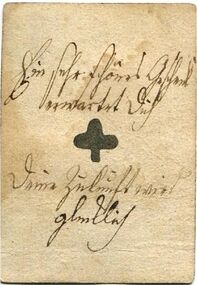 Ein sehr schönes Geschenk
erwartet Dich
Deine Zukunft wird
glücklich